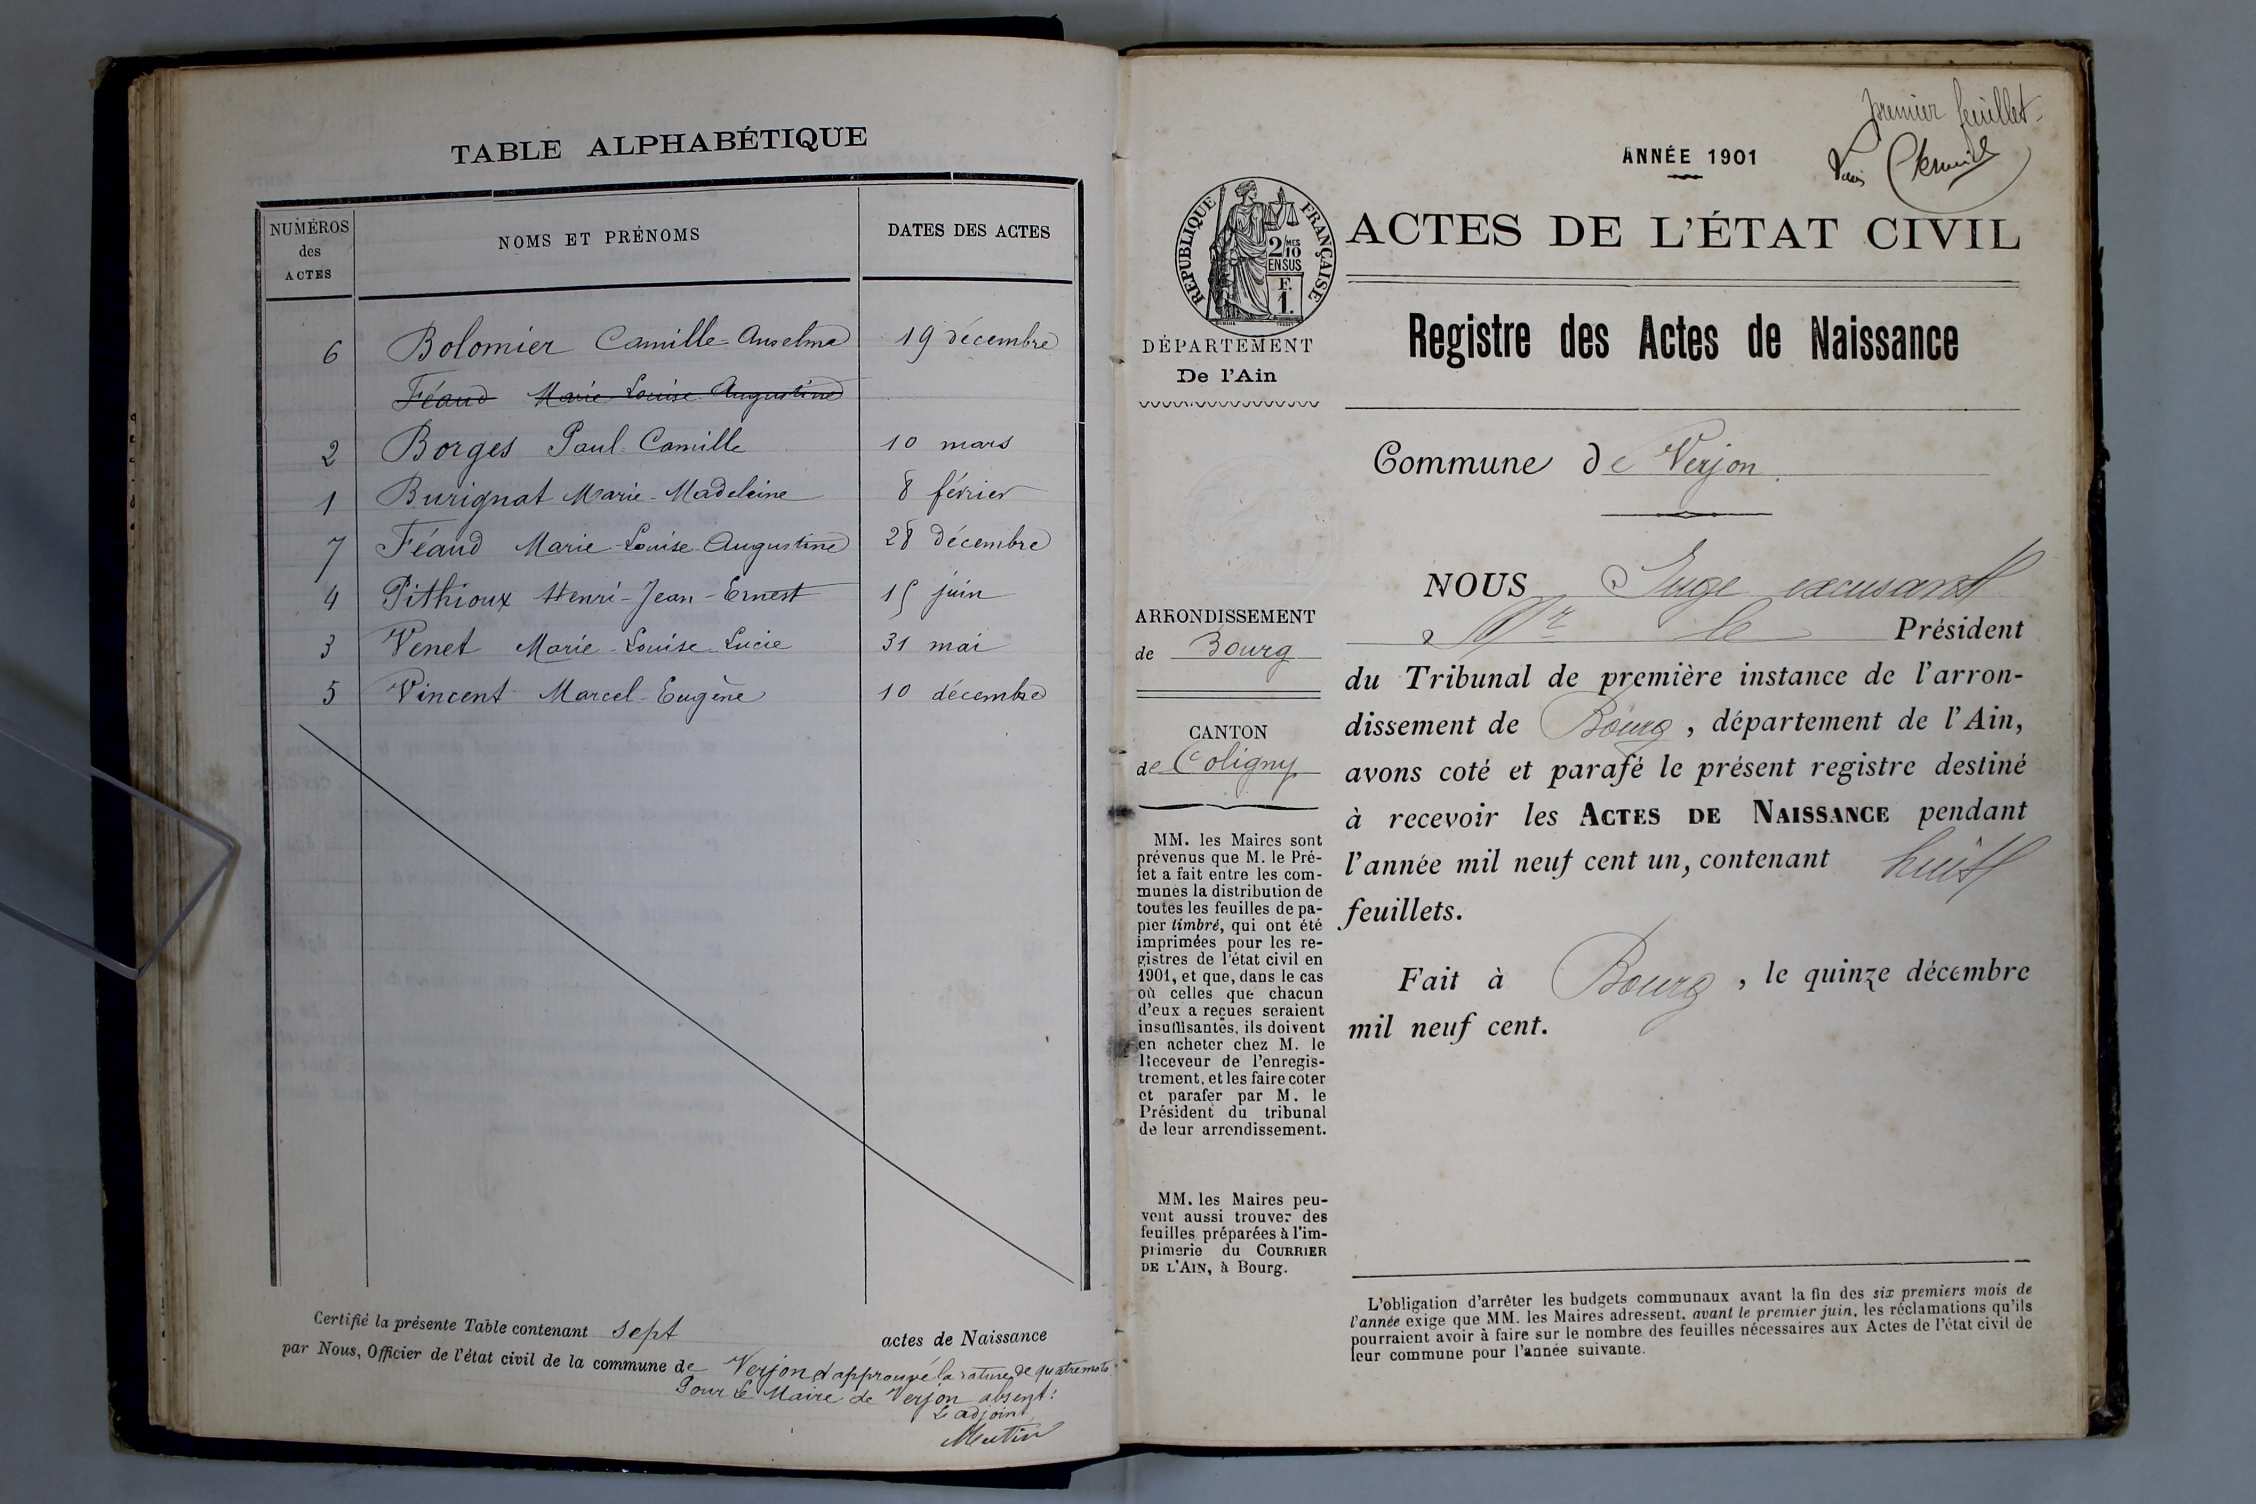 TABLE ALPHABÉTIQUE
NUMÉROS des ACTES
NOMS ET PRÉNOMS
DATES DES ACTES
6 Bolomier Camille-Anselme 19 décembre
Féaud Marie-Louise-Augustine
2 Borges Paul-Camille 10 mars
1 Burignat Marie-Madeleine 8 février
7 Féaud Marie-Louise-Augustine 28 décembre
4 Pithioux Henri-Jean-Ernest 15 juin
3 Venet Marie-Louise-Lucie 31 mai
5 Vincent Marcel-Eugène 10 décembre
Certifié la présente Table contenant sept actes de Naissance
par Nous, Officier de l'état civil de la commune de Verjon et approuvé la rature de quatre mots
Pour le Maire de Verjon absent:
L'adjoint
premier feuillet
ANNÉE 1901
RÉPUBLIQUE FRANÇAISE
2/10 MES
EN SUS
F.
1.
ACTES DE L'ÉTAT CIVIL
Registre des Actes de Naissance
DÉPARTEMENT
De l'Ain
Commune de Verjon
ARRONDISSEMENT
de Bourg
CANTON
de Coligny
MM. les Maires sont
prévenus que M. le Pré-
fet a fait entre les com-
munes la distribution de
toutes les feuilles de pa-
pier timbré, qui ont été
imprimées pour les re-
gistres de l'état civil en
1901, et que, dans le cas
où celles que chacun
d'eux a reçues seraient
insuffisantes, ils doivent
en acheter chez M. le
Receveur de l'enregis-
trement, et les faire coter
et parafer par M. le
Président du tribunal
de leur arrondissement.
MM. les Maires peu-
vent aussi trouver des
feuilles préparées à l'im-
primerie du COURRIER
DE L'AIN, à Bourg.
NOUS Juge excusant
Mr le Président
du Tribunal de première instance de l'arron-
dissement de Bourg, département de l'Ain,
avons coté et parafé le présent registre destiné
à recevoir les ACTES DE NAISSANCE pendant
l'année mil neuf cent un, contenant huit
feuillets.
Fait à Bourg, le quinze décembre
mil neuf cent.
L'obligation d'arrêter les budgets communaux avant la fin des six premiers mois de
l'année exige que MM. les Maires adressent, avant le premier juin, les réclamations qu'ils
pourraient avoir à faire sur le nombre des feuilles nécessaires aux Actes de l'état civil de
leur commune pour l'année suivante.